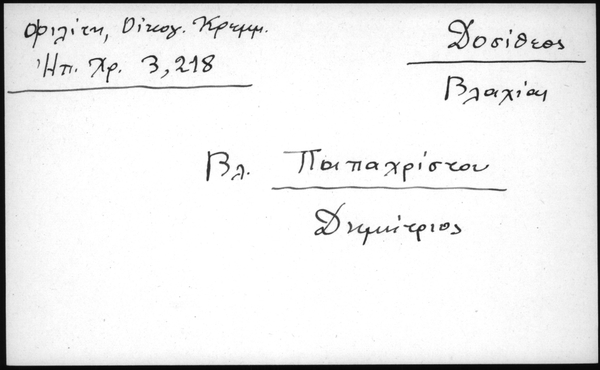 Φιλίτη, Οἰκογ. Κρεμμ.
Ἠπ. Χρ. 3, 218
Δοσίθεος
Βλαχίας
Βλ. Παπαχρίστου
Δημήτριος